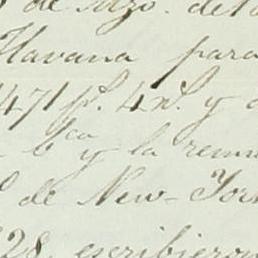 de Mzo. de
Havana para
471 p.s 4 r.s y
b.ca y la remi
de New-York
28. escribieron